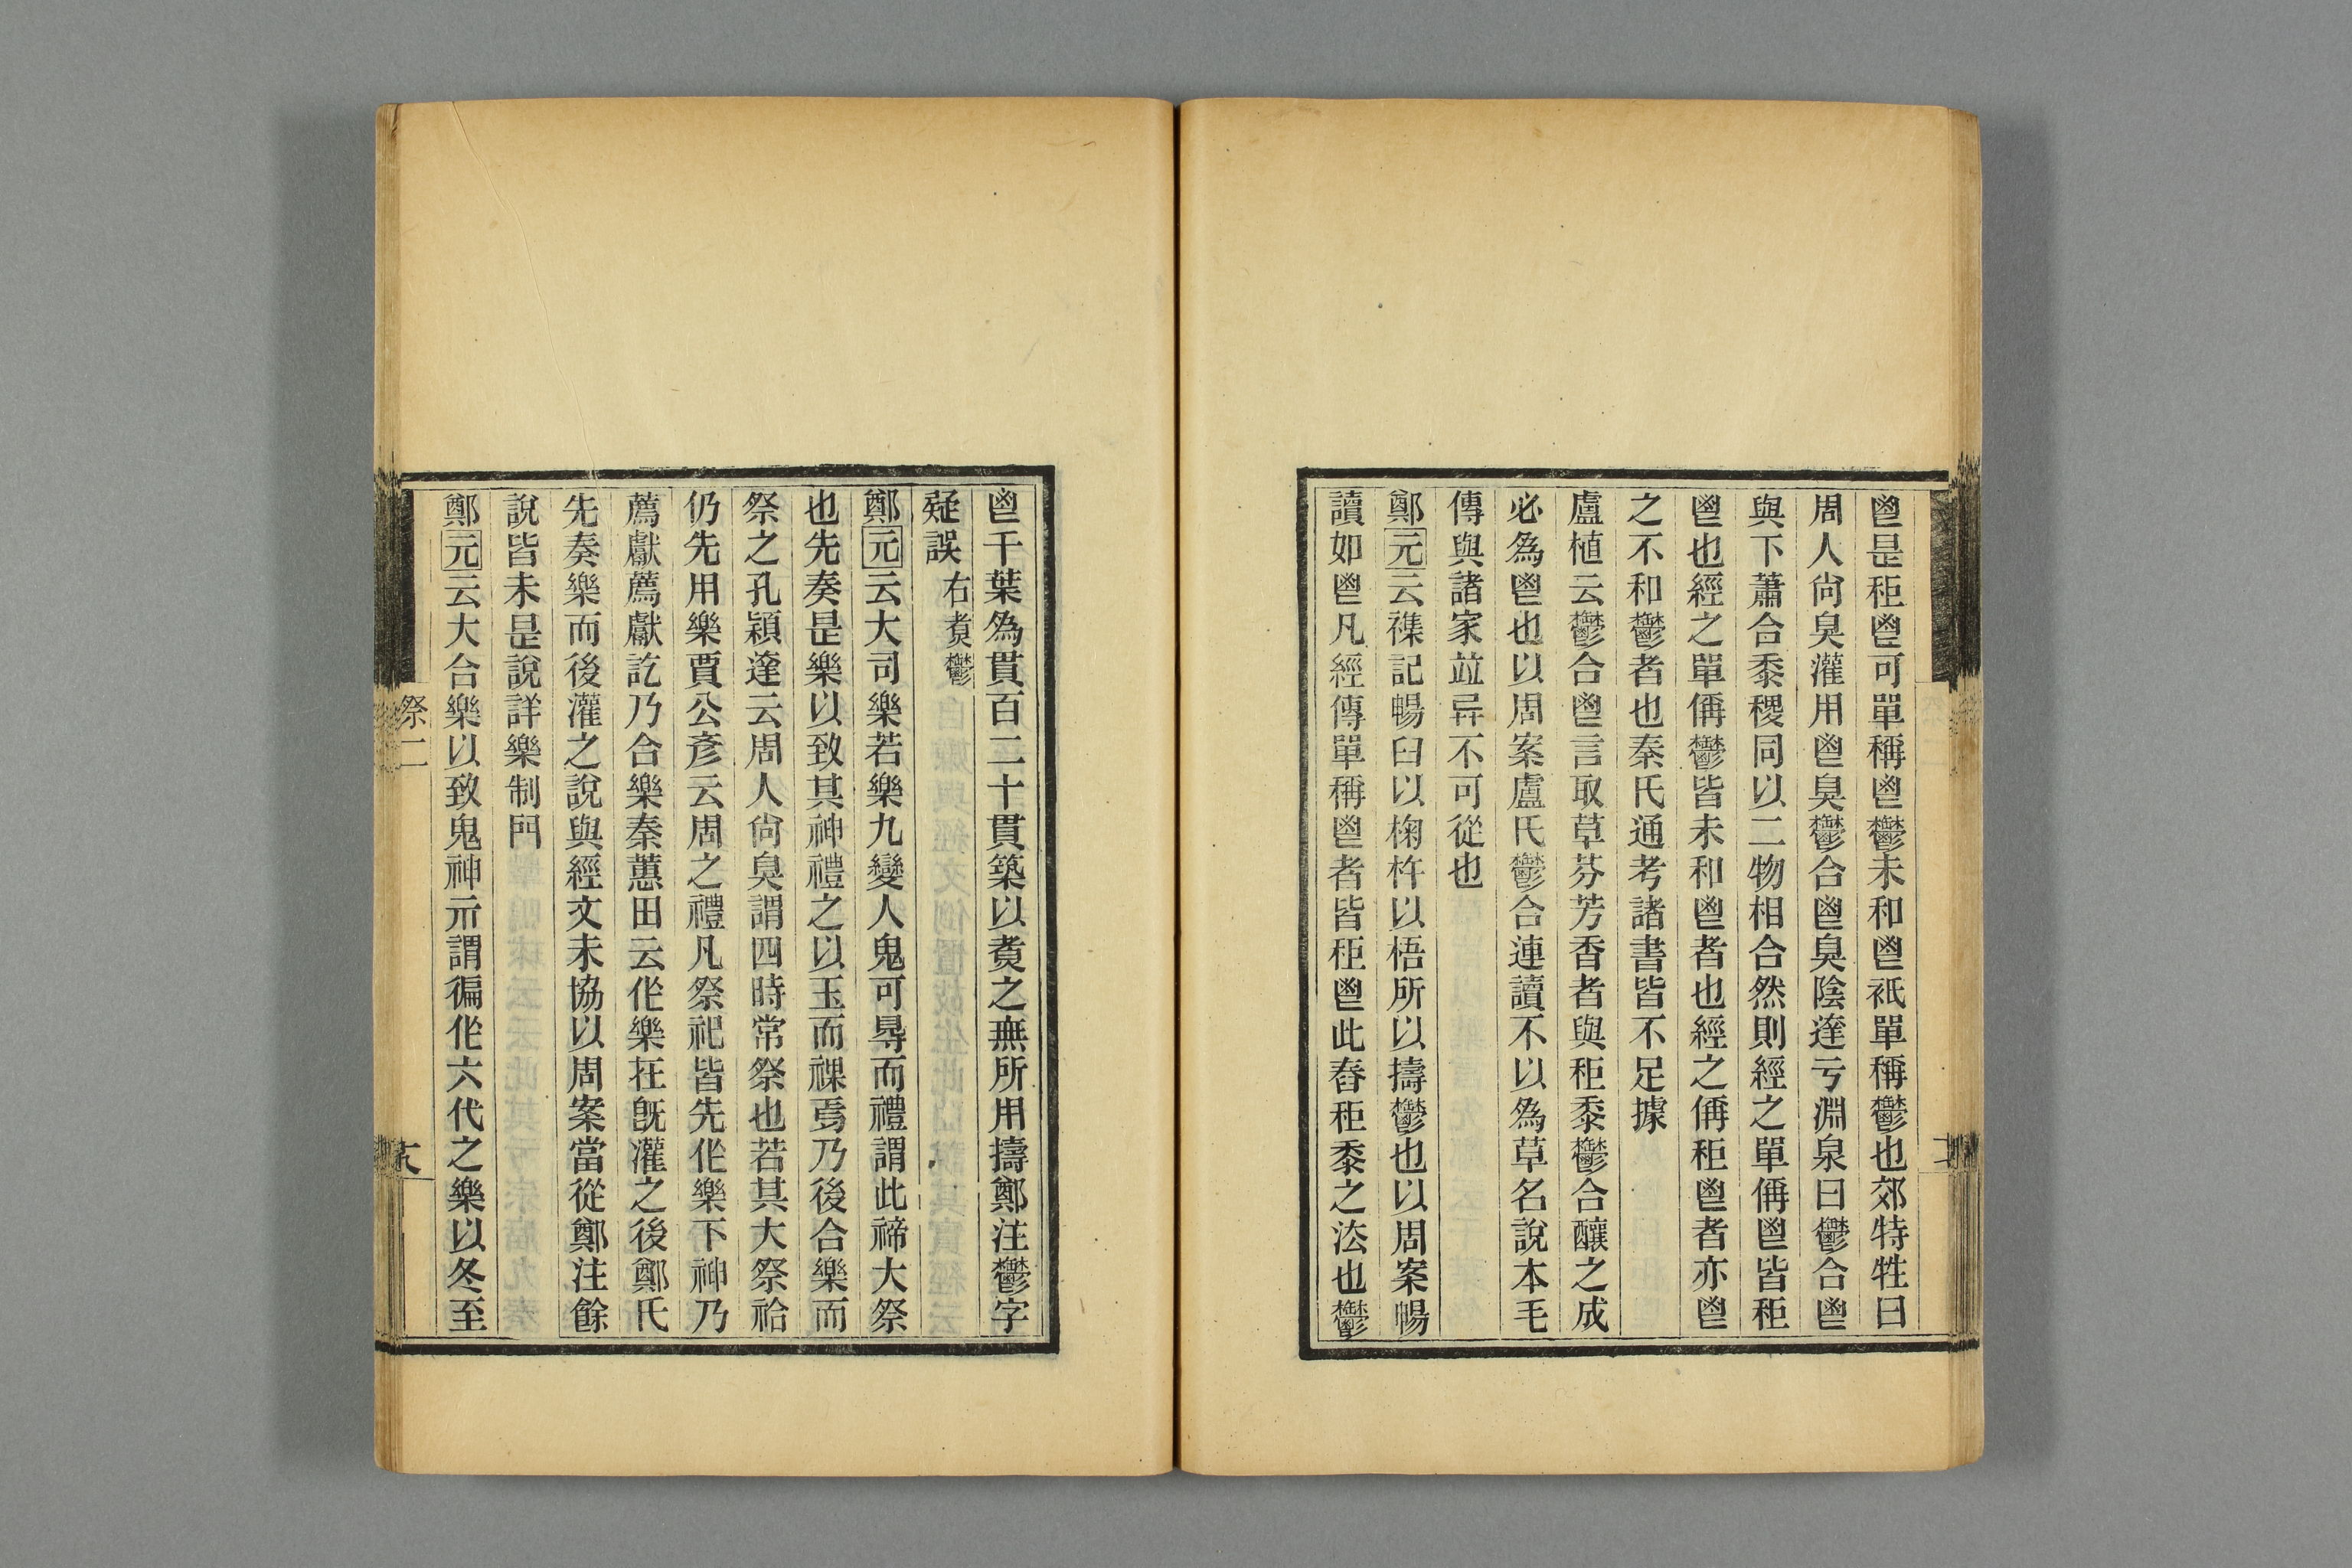 鬯是秬鬯可單稱鬯鬱未和鬯祇單稱鬱也郊特牲曰
周人尙臭灌用鬯臭鬱合鬯臭陰達亏淵泉曰鬱合鬯
與下蕭合黍稷同以二物相合然則經之單偁鬯皆秬
鬯也經之單偁鬱皆未和鬯者也經之偁秬鬯者亦鬯
之不和鬱者也秦氏通考諸書皆不足據
盧植云鬱合鬯言取草芬芳香者與秬黍鬱合釀之成
必爲鬯也以周案盧氏鬱合連讀不以爲草名說本毛
傳與諸家竝异不可從也
鄭元云襍記暢臼以椈杵以梧所以擣鬱也以周案暢
讀如鬯凡經傳單稱鬯者皆秬鬯此舂秬黍之法也鬱
鬯千葉爲貫百二十貫築以煑之無所用擣鄭注鬱字
疑誤 右煑鬱
鄭元云大司樂若樂九變人鬼可㝵而禮謂此禘大祭
也先奏是樂以致其神禮之以玉而祼焉乃後合樂而
祭之孔穎達云周人尙臭謂四時常祭也若其大祭祫
仍先用樂賈公彥云周之禮凡祭祀皆先作樂下神乃
薦獻薦獻訖乃合樂秦蕙田云作樂在旣灌之後鄭氏
先奏樂而後灌之說與經文未協以周案當從鄭注餘
說皆未是說詳樂制門
鄭元云大合樂以致鬼神示謂徧作六代之樂以冬至
祭二